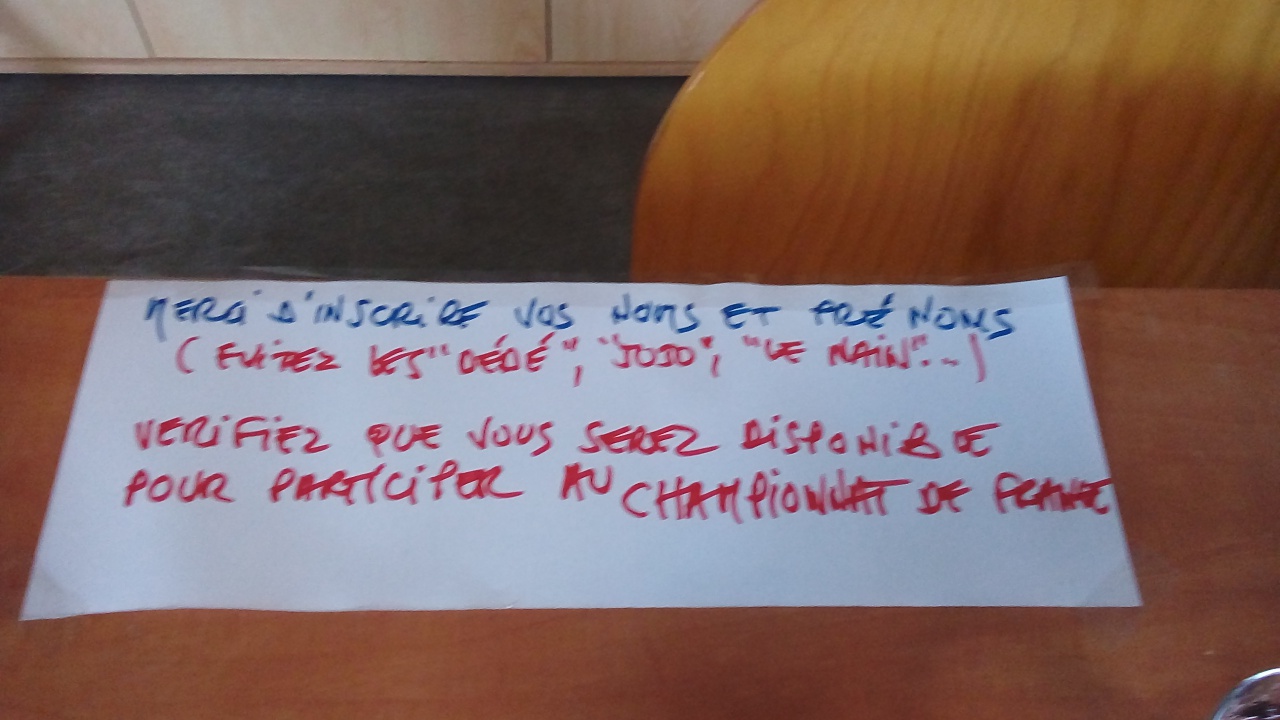 MERCI D'INSCRIRE VOS NOMS ET PRÉNOMS
(EVITEZ LES "DÉDÉ", "JOJO", "LE NAIN"...)
VERIFIEZ QUE VOUS SEREZ DISPONIBLE
POUR PARTICIPER AU CHAMPIONNAT DE FRANCE